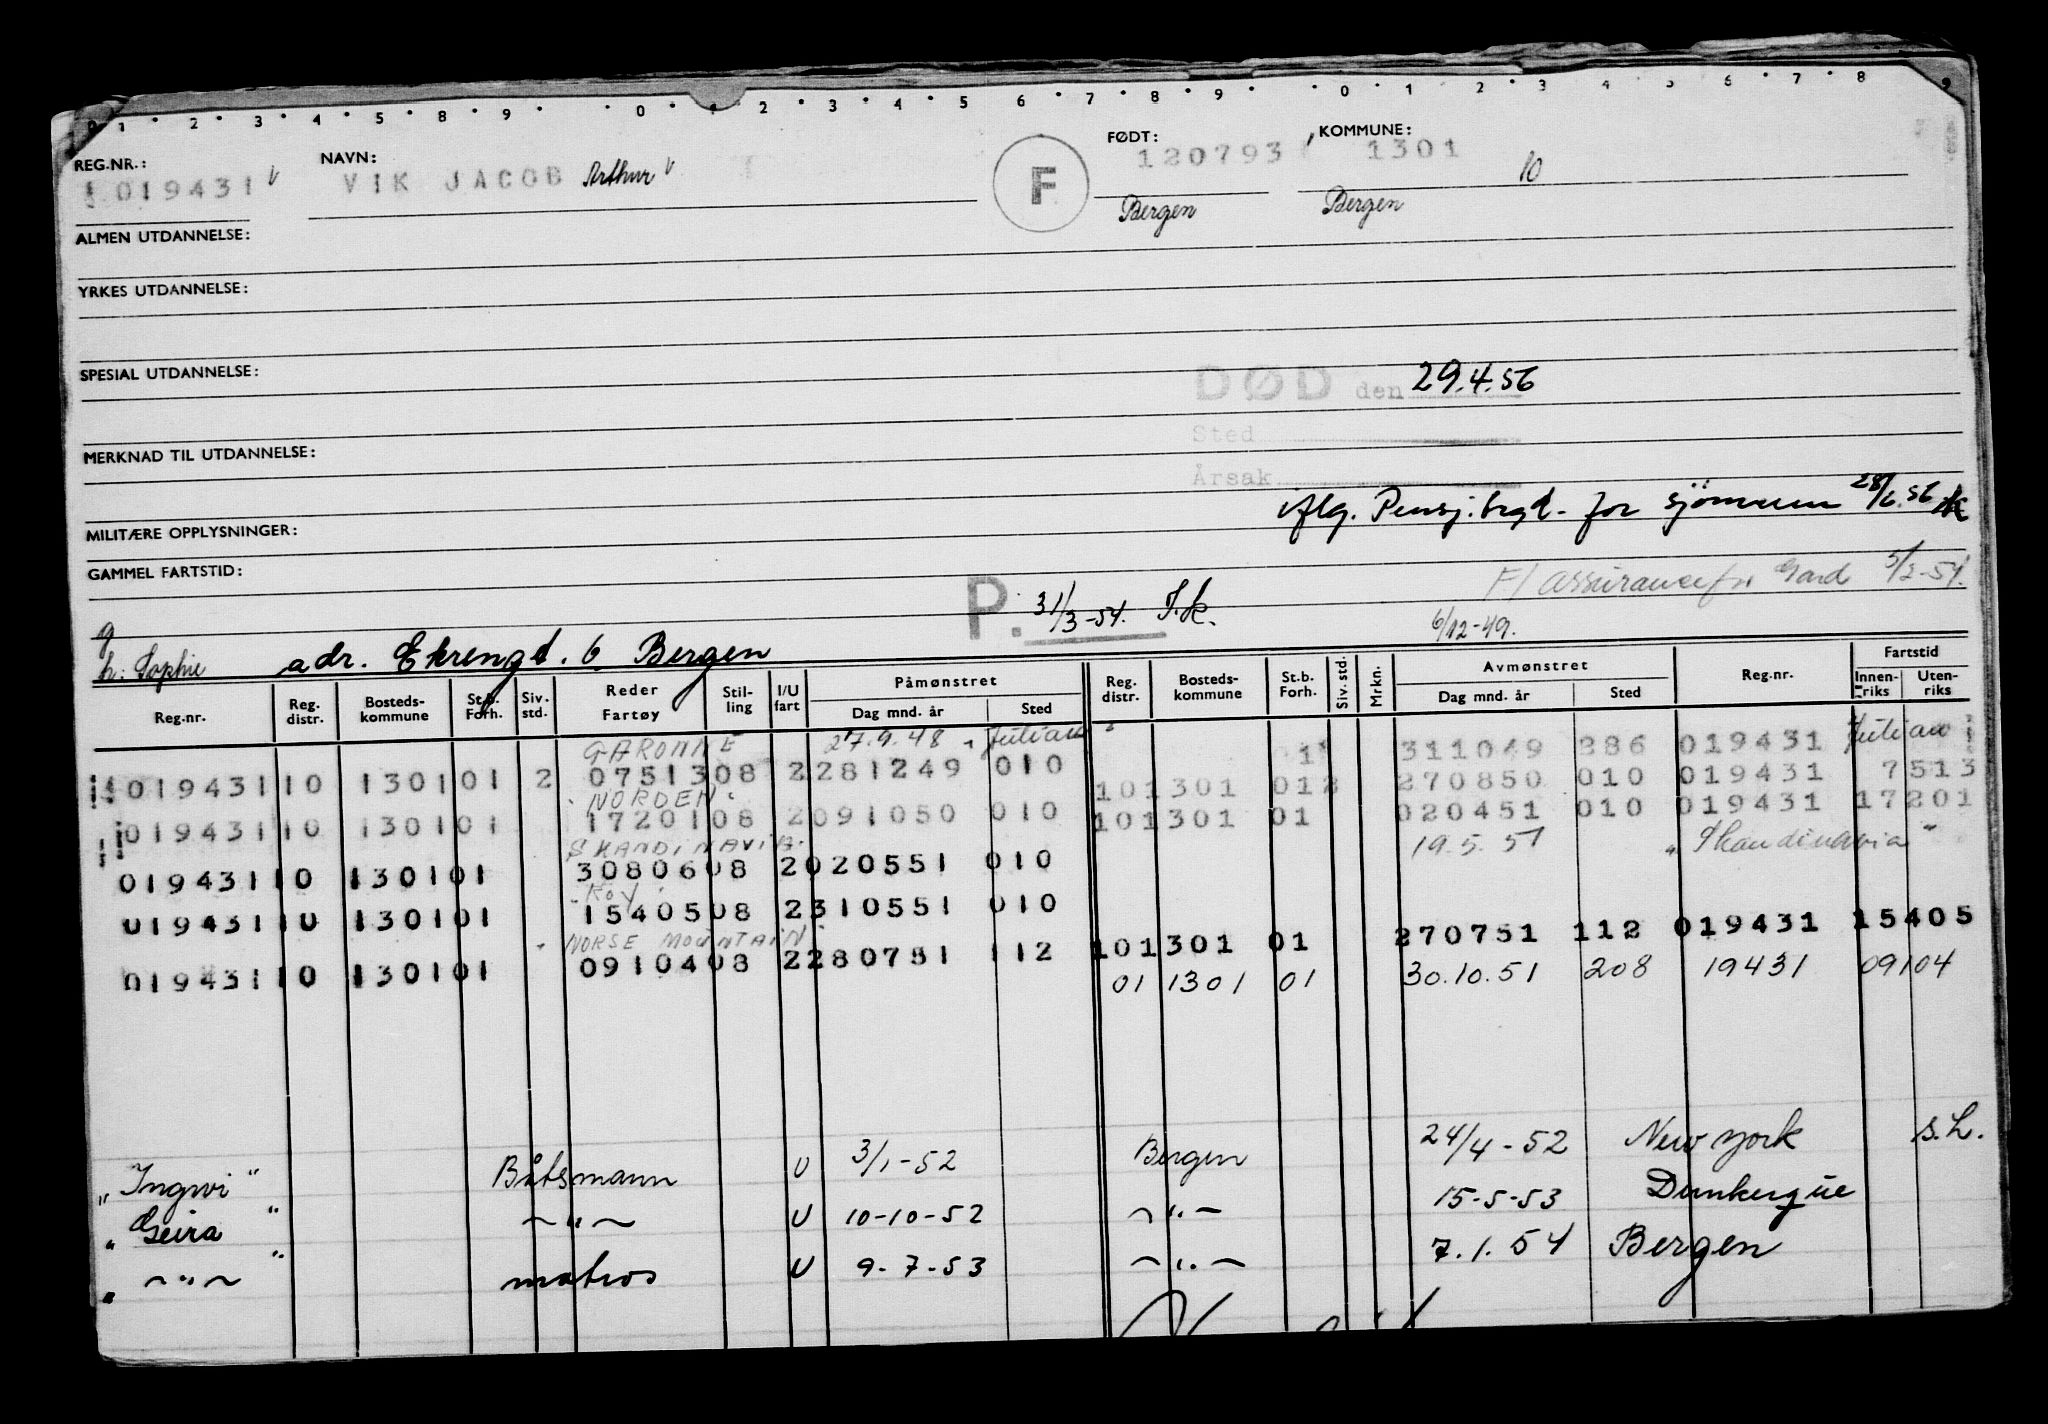 0 1 · 2 · 3 · 4 · 5 · 8 · 9 · 0 · 1 · 2 · 3 · 4 · 5 6 · 7 · 8 · 9 · · 0 · 1 · 2 · 3 4 5 6 · 7 · 8 9
REG.NR.: NAVN: FØDT: KOMMUNE:
019431 V VIK JACOB Arthur V F 120793 1301 10
Bergen Bergen
ALMEN UTDANNELSE:
YRKES UTDANNELSE:
SPESIAL UTDANNELSE:
DØD den 29.4.56
Sted
MERKNAD TIL UTDANNELSE:
Årsak
Avg. Pensj.trgd. for sjömenn 28/6.56
MILITÆRE OPPLYSNINGER:
GAMMEL FARTSTID:
F/ assuransefor. Gard 5/2-54.
P. 31/3-54. T.k.
6/12-49.
g
h: Sophie adr. Ekrengt. 6 Bergen
Reg.nr. Reg. distr. Bosteds-kommune St.b. Forh. Siv. std. Reder Fartøy Stil-ling I/U fart Påmønstret Dag mnd. år Sted Reg. distr. Bosteds-kommune St.b. Forh. Siv. std. Mrkn. Avmønstret Dag mnd. år Sted Reg.nr. Fartstid Innen-riks Uten-riks
GARONNE 27.9.48 "Julian" 1 311049 286 019431 Julian
019431 10 1301 01 2 07513 08 2 281249 010 10 1301 01 2 270850 010 019431 7513
"NORDEN"
019431 10 1301 01 17201 08 2 091050 010 10 1301 01 020451 010 019431 17201
SKANDINAVIA 19.5.51 "Skandinavia"
019431 10 1301 01 30806 08 2 020551 010
"ROY"
019431 10 1301 01 15405 08 2 310551 010 10 1301 01 270751 112 019431 15405
"NORSE MOUNTAIN"
019431 10 1301 01 09104 08 2 280751 112 01 1301 01 30.10.51 208 19431 09104
"Ingwi" Båtsmann U 3/1-52 Bergen 24/4-52 New York s.L.
"Geira" ~"~ U 10-10-52 ~"~ 15-5-53 Dunkerque
" ~"~ " matros U 9-7-53 ~"~ 7.1.54 Bergen